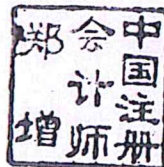 中国注册
会计师
郑增